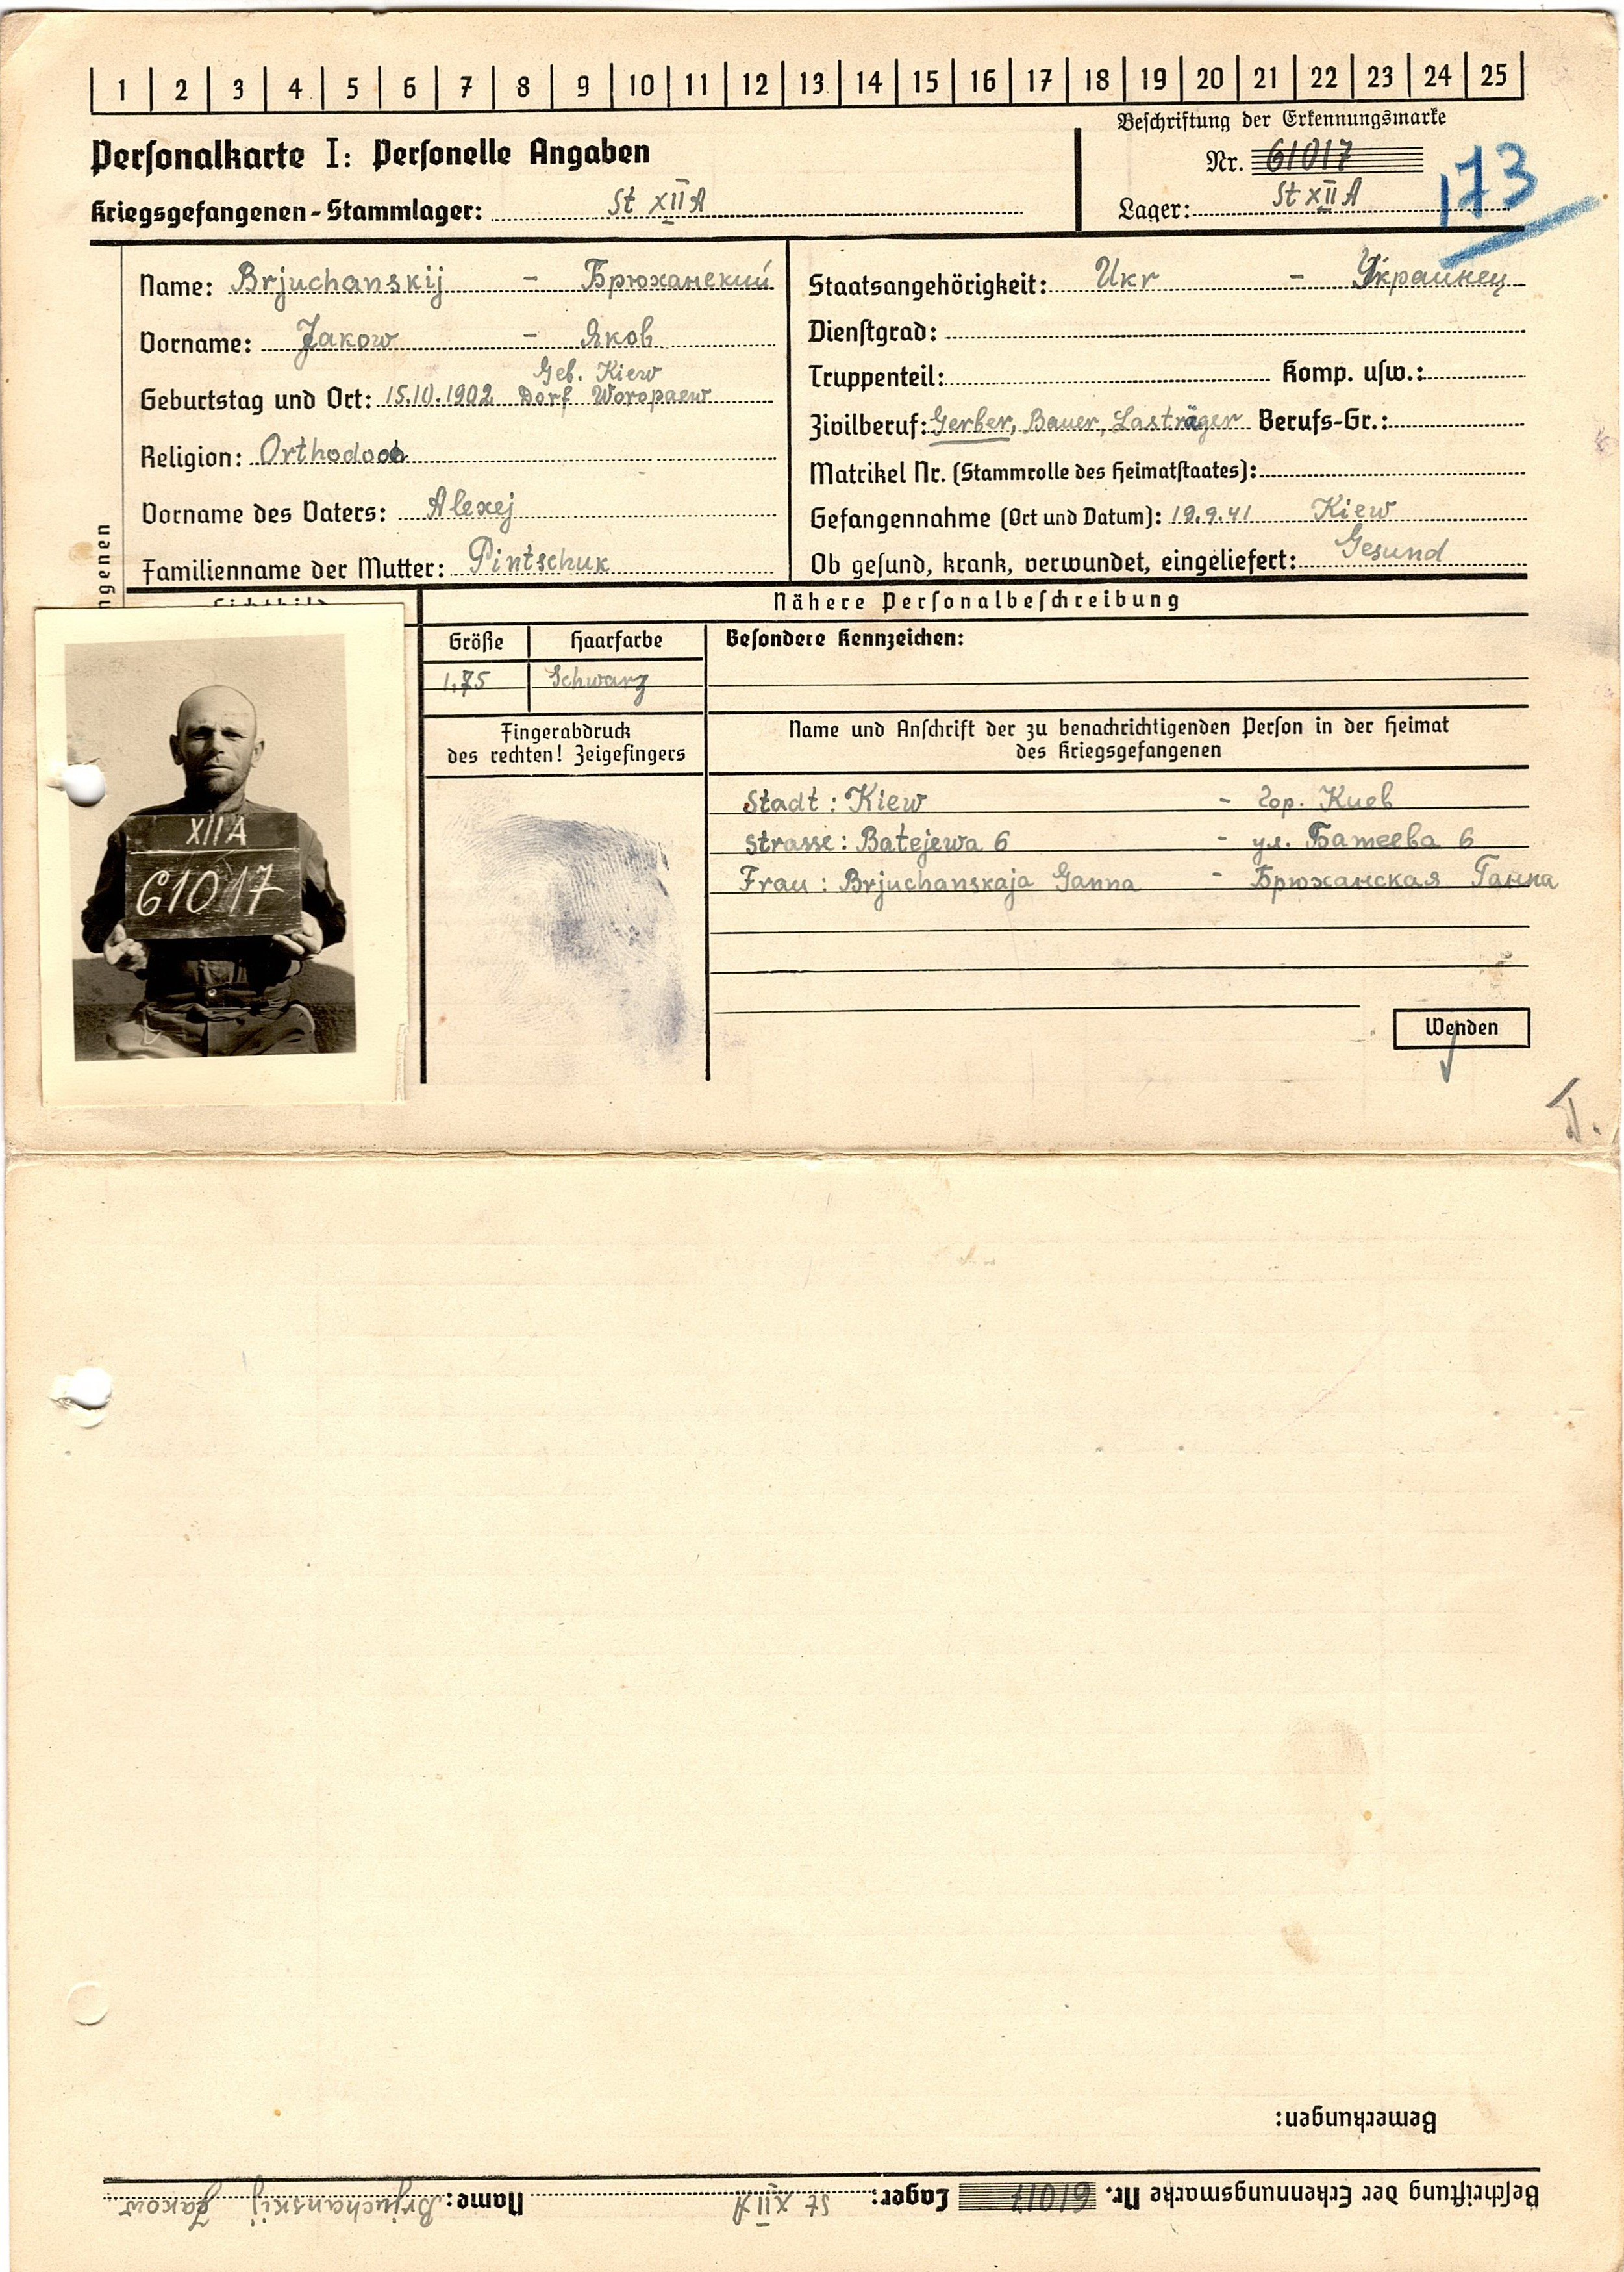 1 2 3 4 5 6 7 8 9 10 11 12 13 14 15 16 17 18 19 20 21 22 23 24 25
Beschriftung der Erkennungsmarke
Personalkarte I: Personelle Angaben
Nr. 61017
173
Kriegsgefangenen-Stammlager: St XII A
Lager: St XII A
Name: Brjuchanskij - Брюханский
Vorname: Jakow - Яков
Geb. Kiew
Geburtstag und Ort: 15.10.1902 Dorf Woropaew
Religion: Orthodox
Vorname des Vaters: Alexej
Familienname der Mutter: Pintschuk
Staatsangehörigkeit: Ukr - Украинец
Dienstgrad:
Truppenteil: Komp. usw.:
Zivilberuf: Gerber, Bauer, Lastträger Berufs-Gr.:
Matrikel Nr. (Stammrolle des Heimatstaates):
Gefangennahme (Ort und Datum): 19.9.41 Kiew
Ob gesund, krank, verwundet, eingeliefert: Gesund
ngenen
Nähere Personalbeschreibung
Größe Haarfarbe Besondere Kennzeichen:
1,75 Schwarz
Fingerabdruck
des rechten! Zeigefingers
Name und Anschrift der zu benachrichtigenden Person in der Heimat
des Kriegsgefangenen
Stadt: Kiew - гор. Киев
Strasse: Batejewa 6 - ул. Батеева 6
Frau: Brjuchanskaja Ganna - Брюханская Ганна
XII A
61017
Wenden
Bemerkungen:
Beschriftung der Erkennungsmarke Nr. 61017 Lager: St XII A Name: Brjuchanskij Jakow